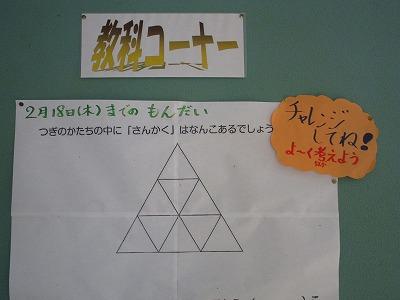 教科コーナー
2月18日(木)までの もんだい
つぎのかたちの中に「さんかく」はなんこあるでしょう
チャレンジ
してね!
よ〜く考えよう